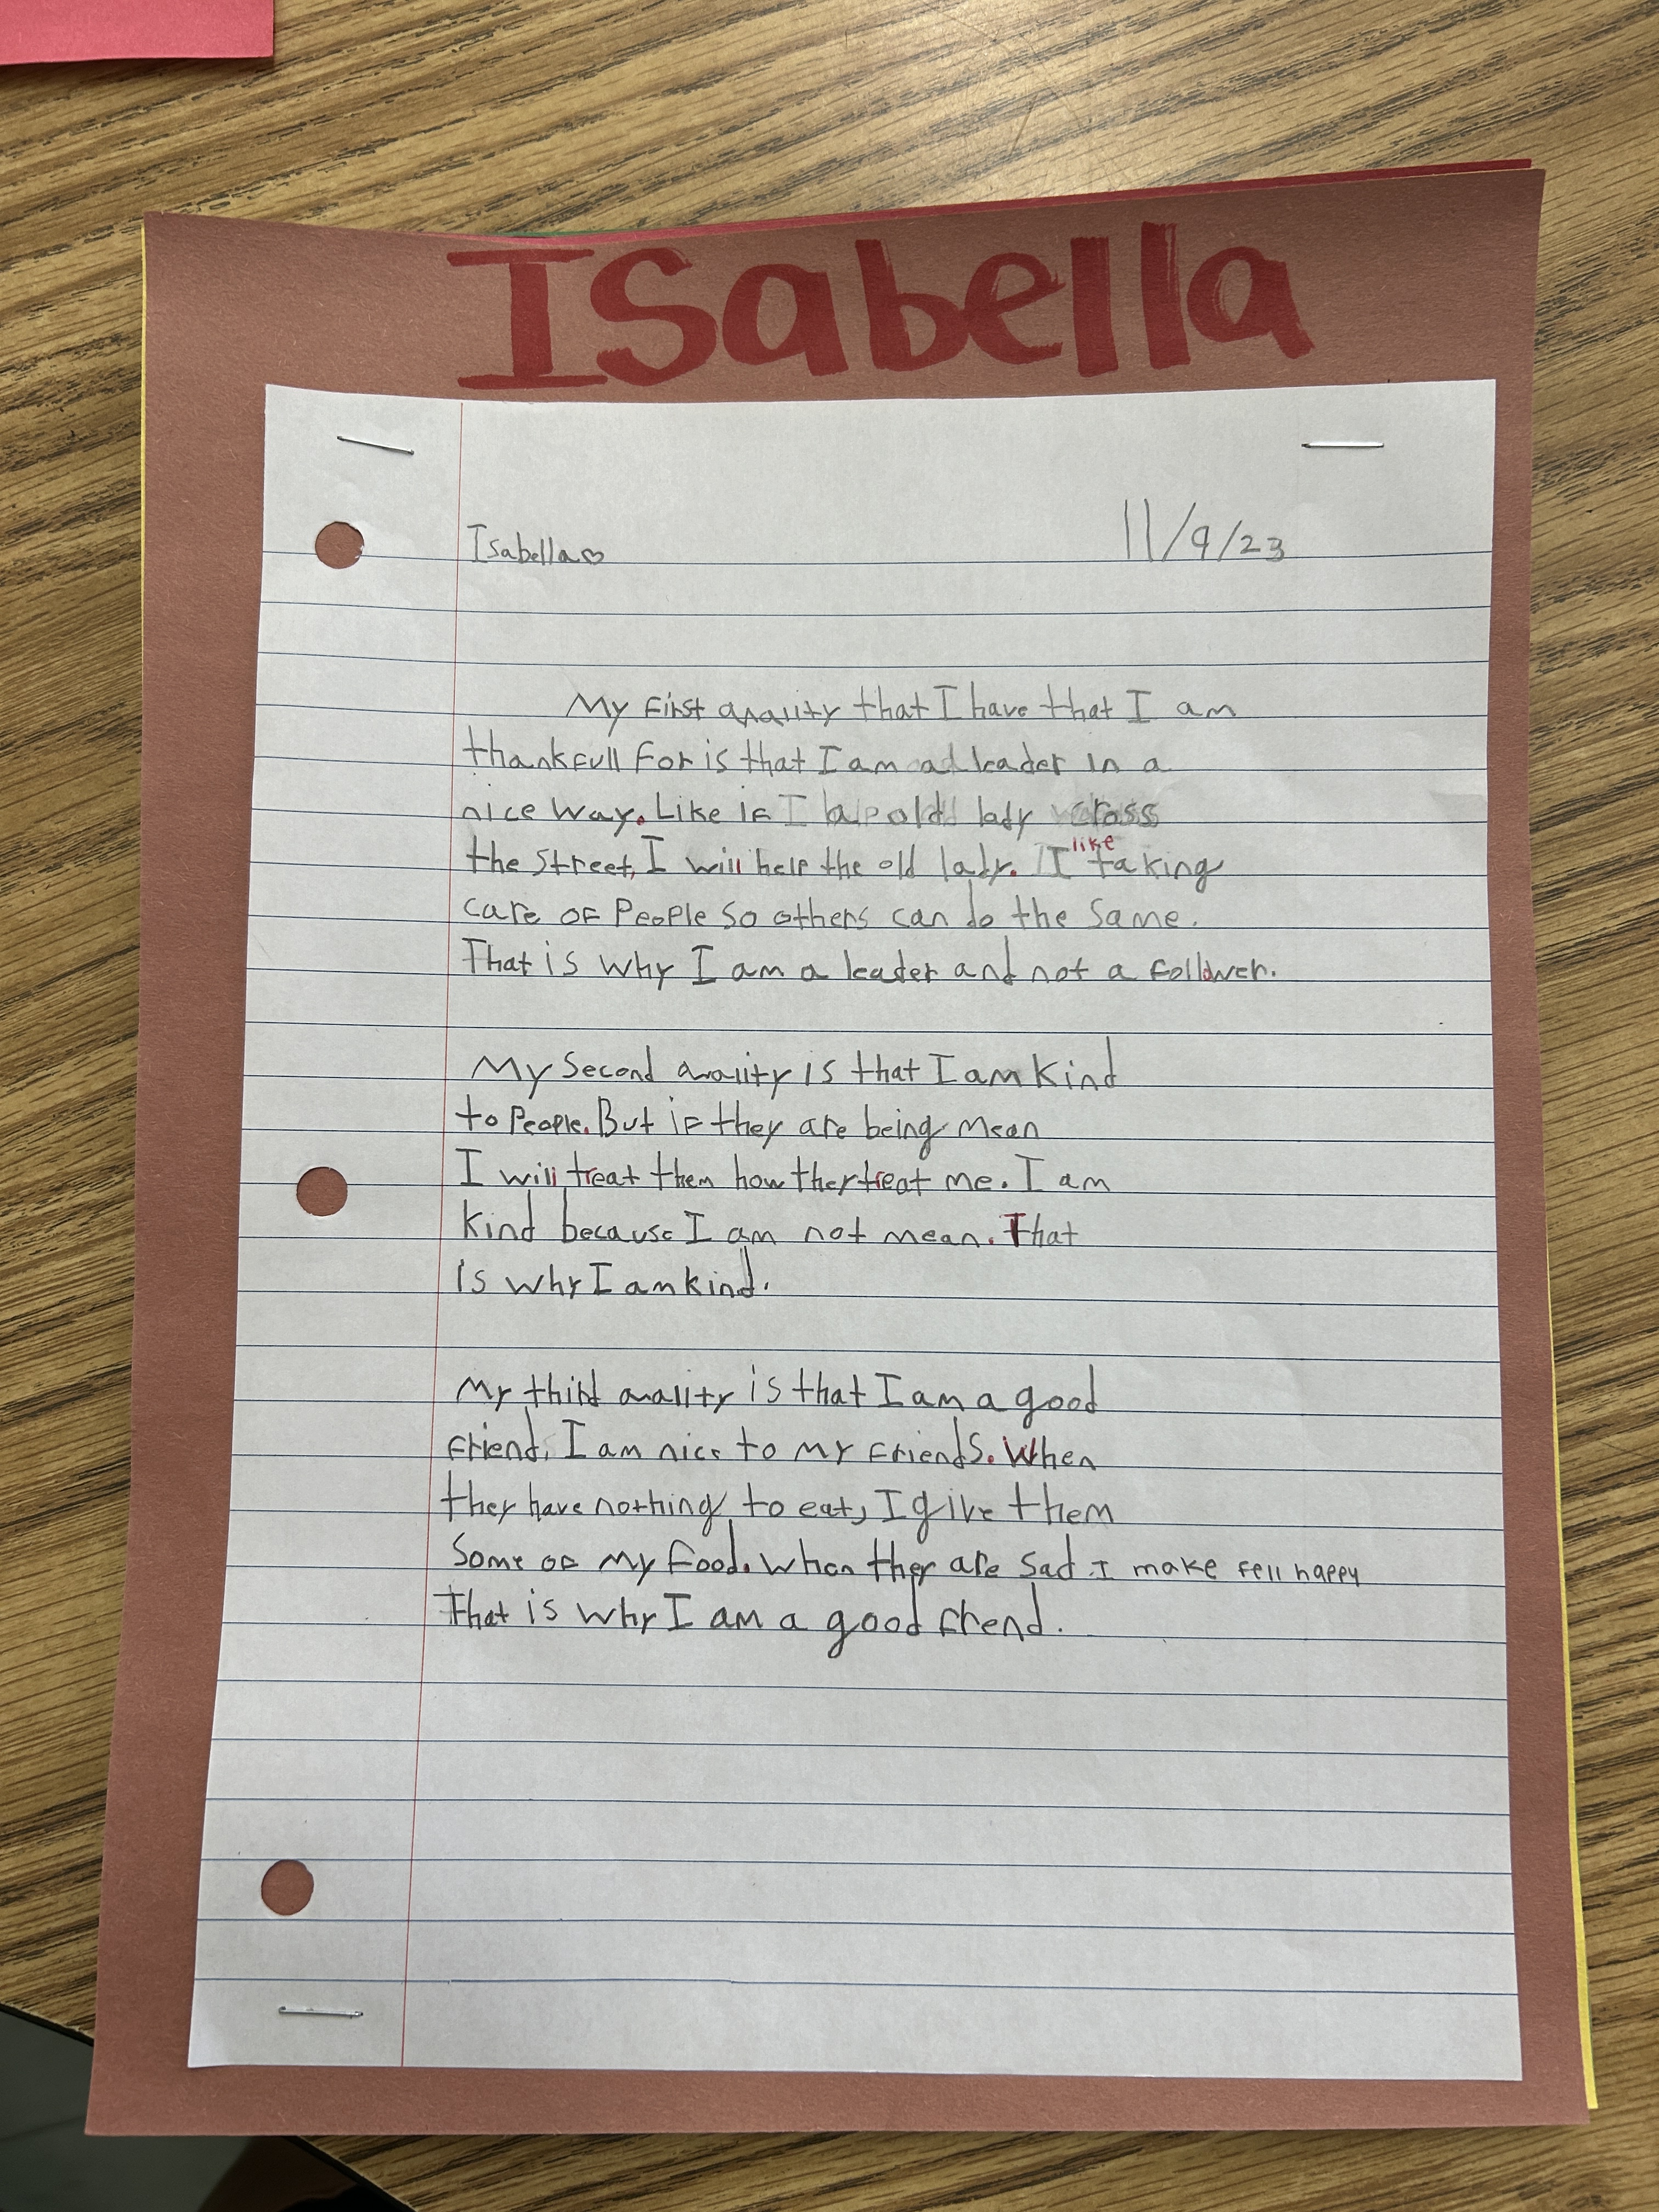 Isabella
Isabella♡ 11/9/23
My First quality that I have that I am
thankfull For is that I am a leader in a
nice way. Like if I old lady cross
the street, I will help the old lady. I like taking
care of People so others can do the same.
That is why I am a leader and not a follower.
My second quality is that I am kind
to People. But if they are being mean
I will treat them how they treat me. I am
kind because I am not mean. That
is why I am kind.
My third quality is that I am a good
friend. I am nice to my friends. When
they have nothing to eat, I give them
Some of my food. When they are sad I make fell happy
That is why I am a good friend.